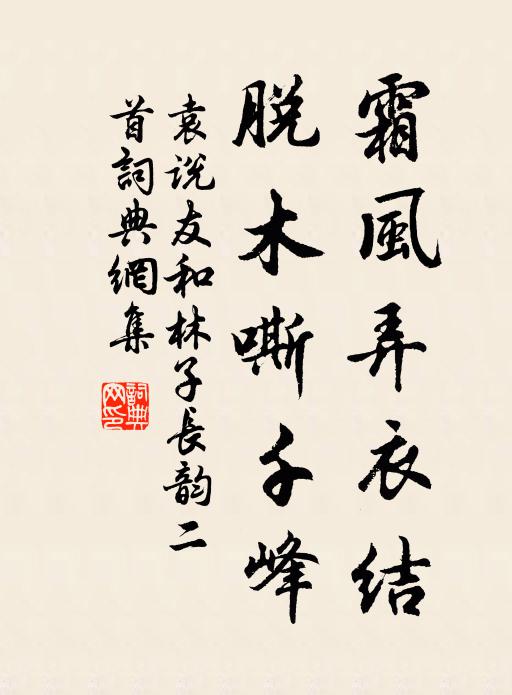 霜風弄衣結
脫木嘶千峰
袁说友和林子長韵二
首詞典網集
詞典
网印